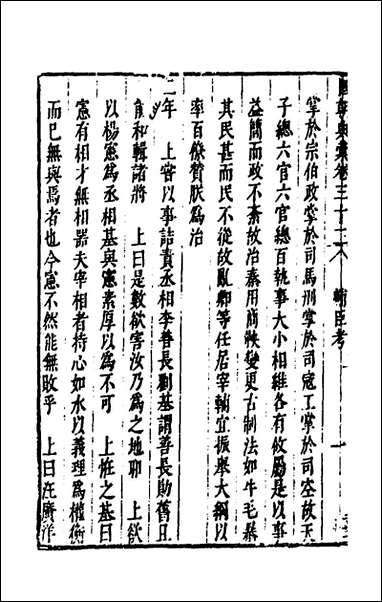 國朝典彙卷三十二 輔臣考 一
掌於宗伯政掌於司馬刑掌於司寇工掌於司空故天
子總六官六官總百執事大小相維各有攸屬是以事
益簡而政不紊故治秦用商鞅變更古制法如牛毛暴
其民甚而民不從故亂卿等任居宰輔宜振舉大綱以
率百僚贊朕爲治
二年 上嘗以事詰責丞相李善長劉基謂善長勛舊且
能和輯諸將 上曰是數欲害汝乃爲之地耶 上欲
以楊憲爲丞相基與憲素厚以爲不可 上恠之基曰
憲有相才無相器夫宰相者持心如水以義理爲權衡
而已無與焉者也今憲不然能無敗乎 上曰汪廣洋